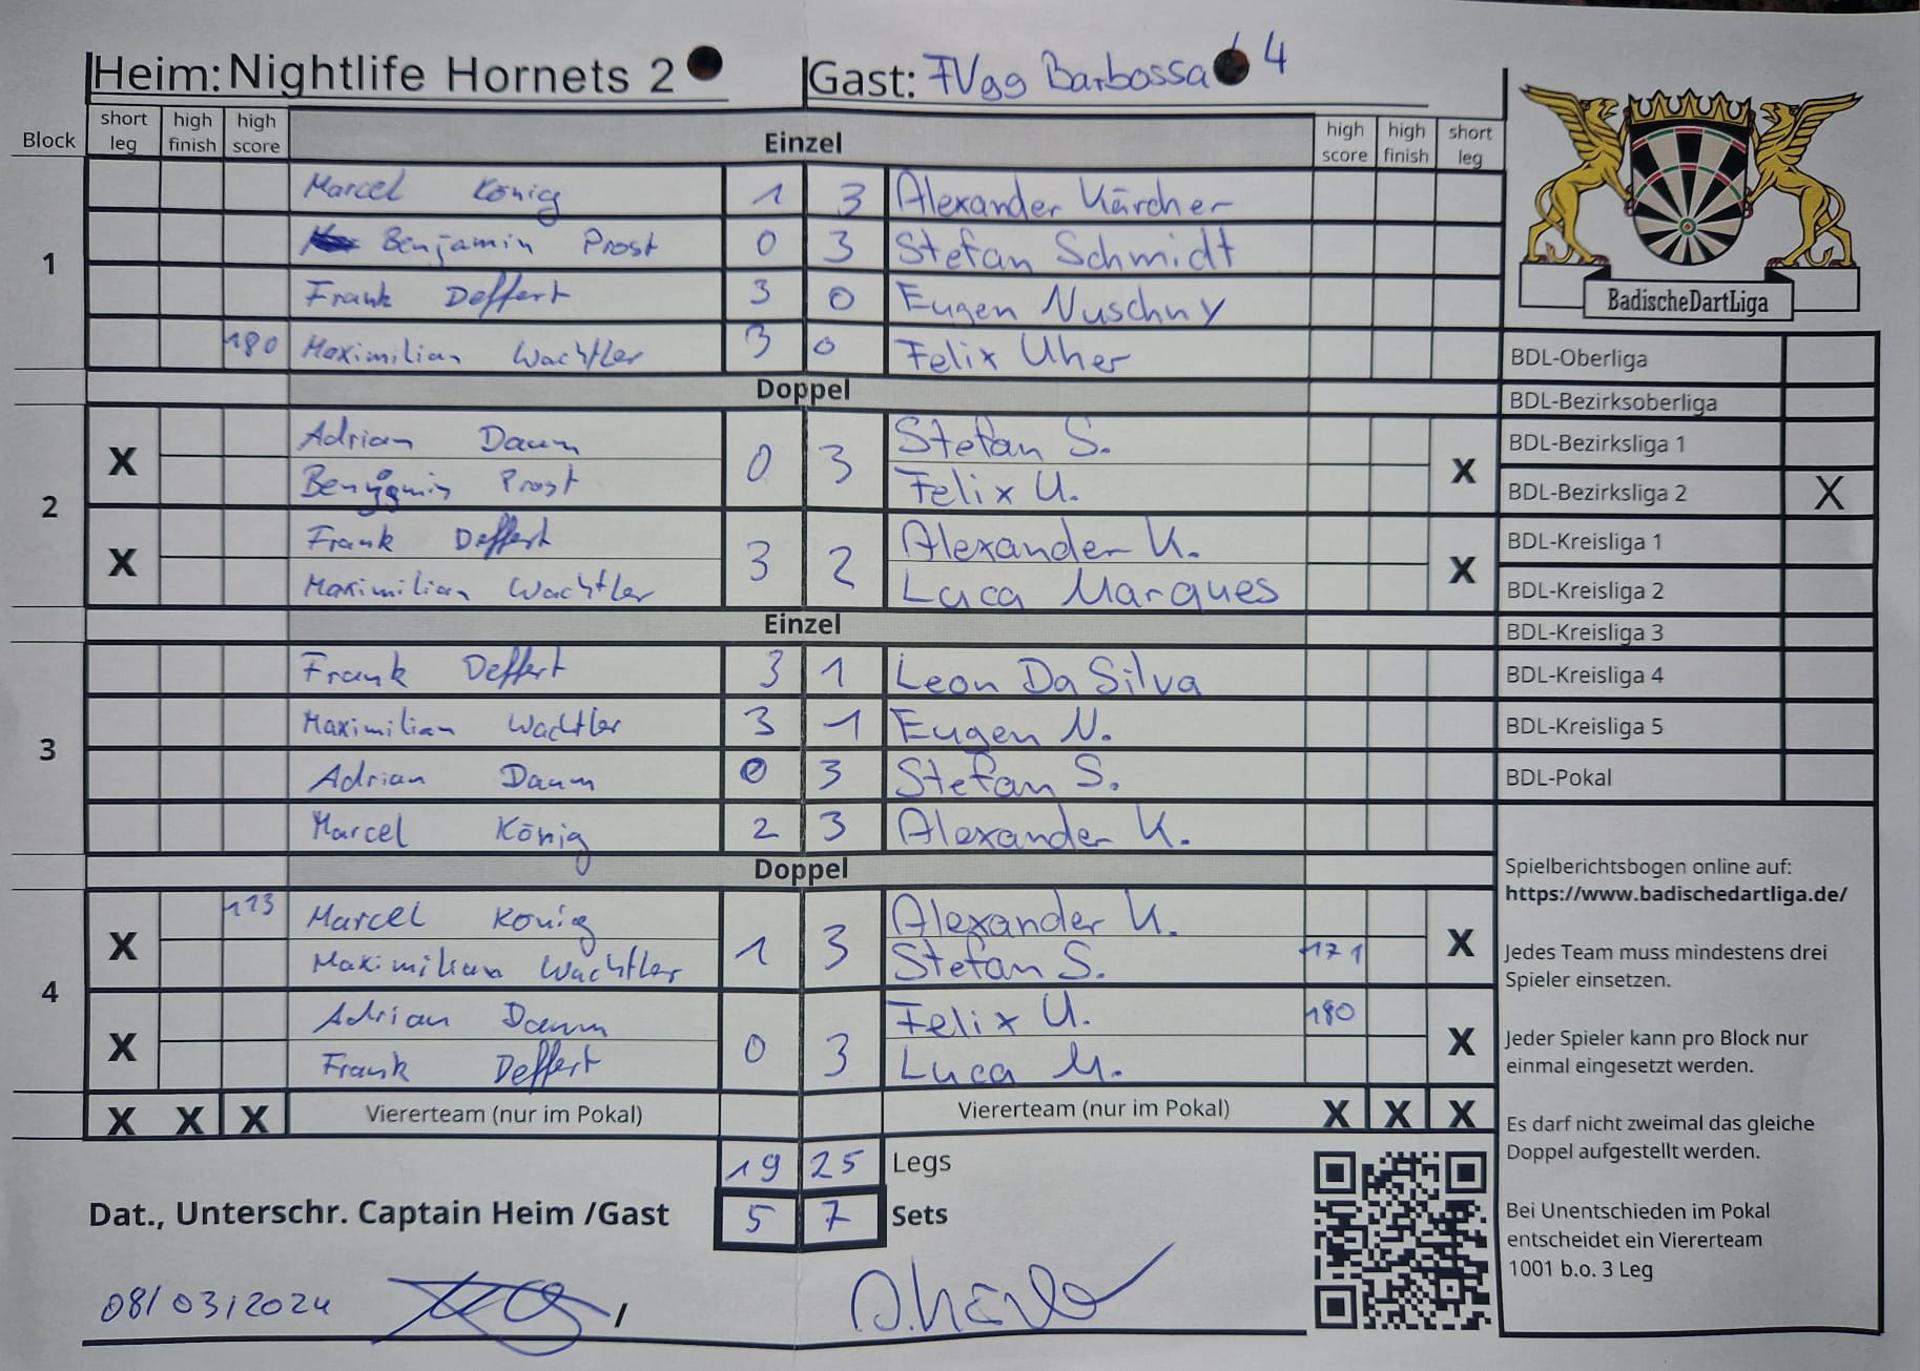 Heim: Nightlife Hornets 2 Gast: FVgg Barbossa 4
Block short leg high finish high score Einzel high score high finish short leg
1
Marcel König 1 3 Alexander Kärcher
Benjamin Prost 0 3 Stefan Schmidt
Frank Deffert 3 0 Eugen Nuschny
180 Maximilian Wachtler 3 0 Felix Uher
Doppel
2
X Adrian Daum 0 3 Stefan S. X
Benjamin Prost Felix U.
X Frank Deffert 3 2 Alexander K. X
Maximilian Wachtler Luca Marques
Einzel
3
Frank Deffert 3 1 Leon Da Silva
Maximilian Wachtler 3 1 Eugen N.
Adrian Daum 0 3 Stefan S.
Marcel König 2 3 Alexander K.
Doppel
4
X 113 Marcel König 1 3 Alexander K. X
Maximilian Wachtler Stefan S. 171
X Adrian Daum 0 3 Felix U. 180 X
Frank Deffert Luca M.
X X X Viererteam (nur im Pokal) Viererteam (nur im Pokal) X X X
19 25 Legs
Dat., Unterschr. Captain Heim /Gast 5 7 Sets
08/03/2024 /
BadischeDartLiga
BDL-Oberliga
BDL-Bezirksoberliga
BDL-Bezirksliga 1
BDL-Bezirksliga 2 X
BDL-Kreisliga 1
BDL-Kreisliga 2
BDL-Kreisliga 3
BDL-Kreisliga 4
BDL-Kreisliga 5
BDL-Pokal
Spielberichtsbogen online auf:
https://www.badischedartliga.de/
Jedes Team muss mindestens drei
Spieler einsetzen.
Jeder Spieler kann pro Block nur
einmal eingesetzt werden.
Es darf nicht zweimal das gleiche
Doppel aufgestellt werden.
Bei Unentschieden im Pokal
entscheidet ein Viererteam
1001 b.o. 3 Leg